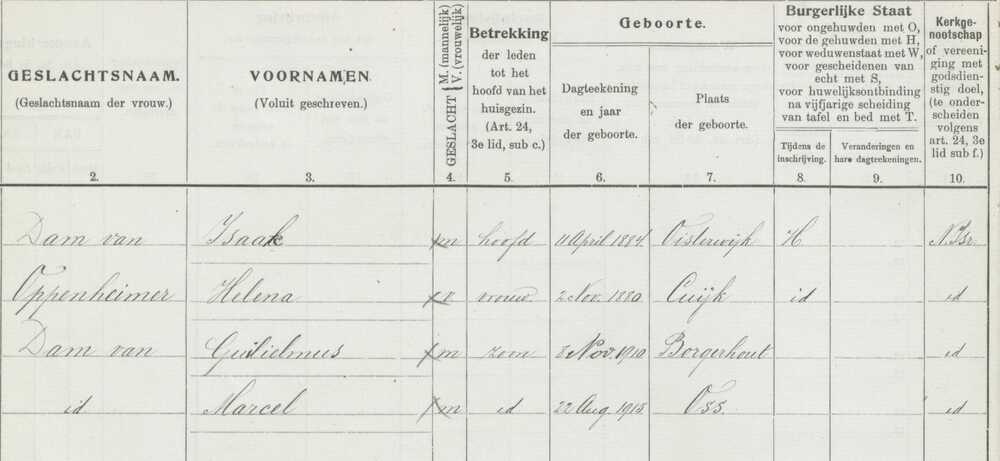 GESLACHTSNAAM.
(Geslachtsnaam der vrouw.)
VOORNAMEN.
(Voluit geschreven.)
GESLACHT M. (mannelijk) V. (vrouwelijk)
Betrekking
der leden
tot het
hoofd van het
huisgezin.
(Art. 24,
3e lid, sub c.)
Geboorte.
Dagteekening
en jaar
der geboorte.
Plaats
der geboorte.
Burgerlijke Staat
voor ongehuwden met O,
voor de gehuwden met H,
voor weduwenstaat met W,
voor gescheidenen van
echt met S,
voor huwelijksontbinding
na vijfjarige scheiding
van tafel en bed met T.
Tijdens de
inschrijving.
Veranderingen en
hare dagteekeningen.
Kerkge-
nootschap
of vereeni-
ging met
godsdien-
stig doel,
(te onder-
scheiden
volgens
art. 24, 3e
lid sub f.)
2. 3. 4. 5. 6. 7. 8. 9. 10.
Dam van Isaak m hoofd 11 April 1884. Oisterwijk H N. Isr.
Oppenheimer Helena v vrouw. 2 Nov. 1880 Cuijk id id
Dam van Guilielmus m zoon 8 Nov. 1910 Borgerhout id
id Marcel m id 22 Aug. 1915. Oss. id